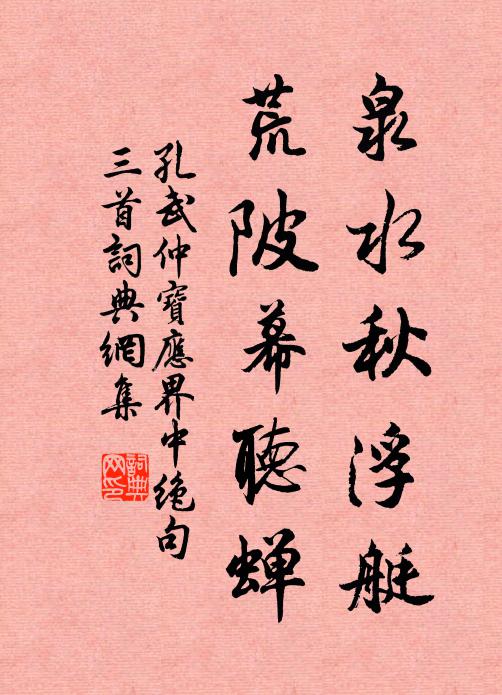 泉水秋浮艇
荒陂幕聽蟬
孔武仲寶應界中絶句
三首詞典網集
詞典网印